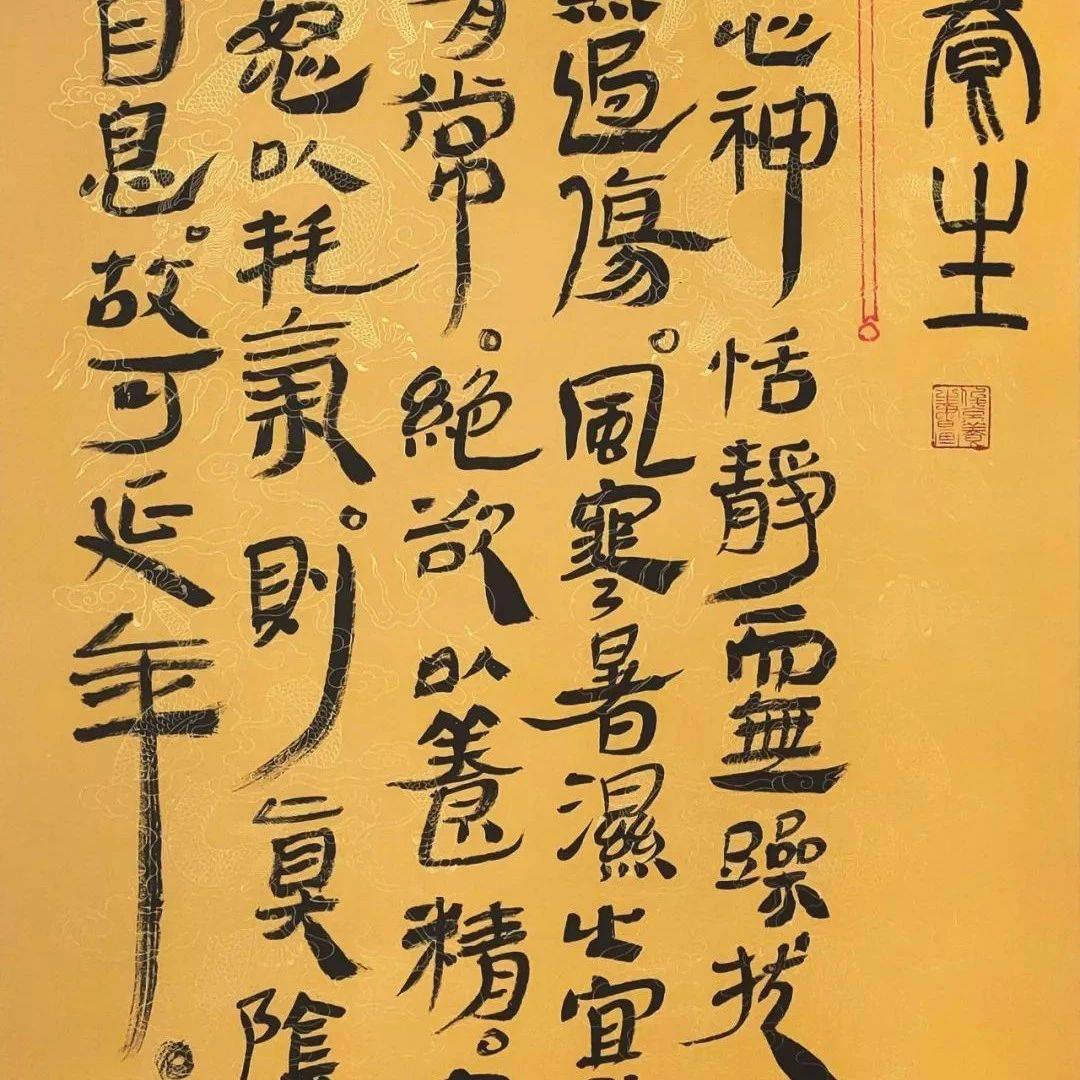 養生
心神恬靜而無躁扰
無過傷。風寒暑濕之宜
有常。絕欲以養精。
怒以耗氣。則真陰
自息。故可延年。